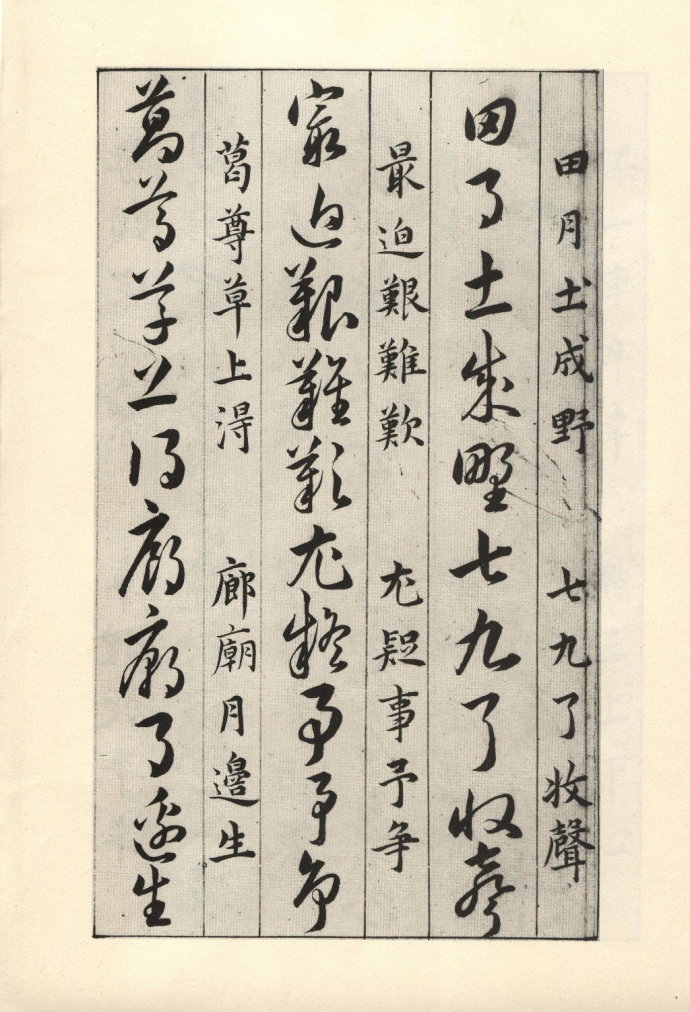 田月土成野 七九了收聲
田月土成野七九了收聲
最迫艱難歎 尤疑事予爭
最迫艱難歎尤疑事予爭
葛尊草上淂 廊廟月邊生
葛尊草上淂廊廟月邊生